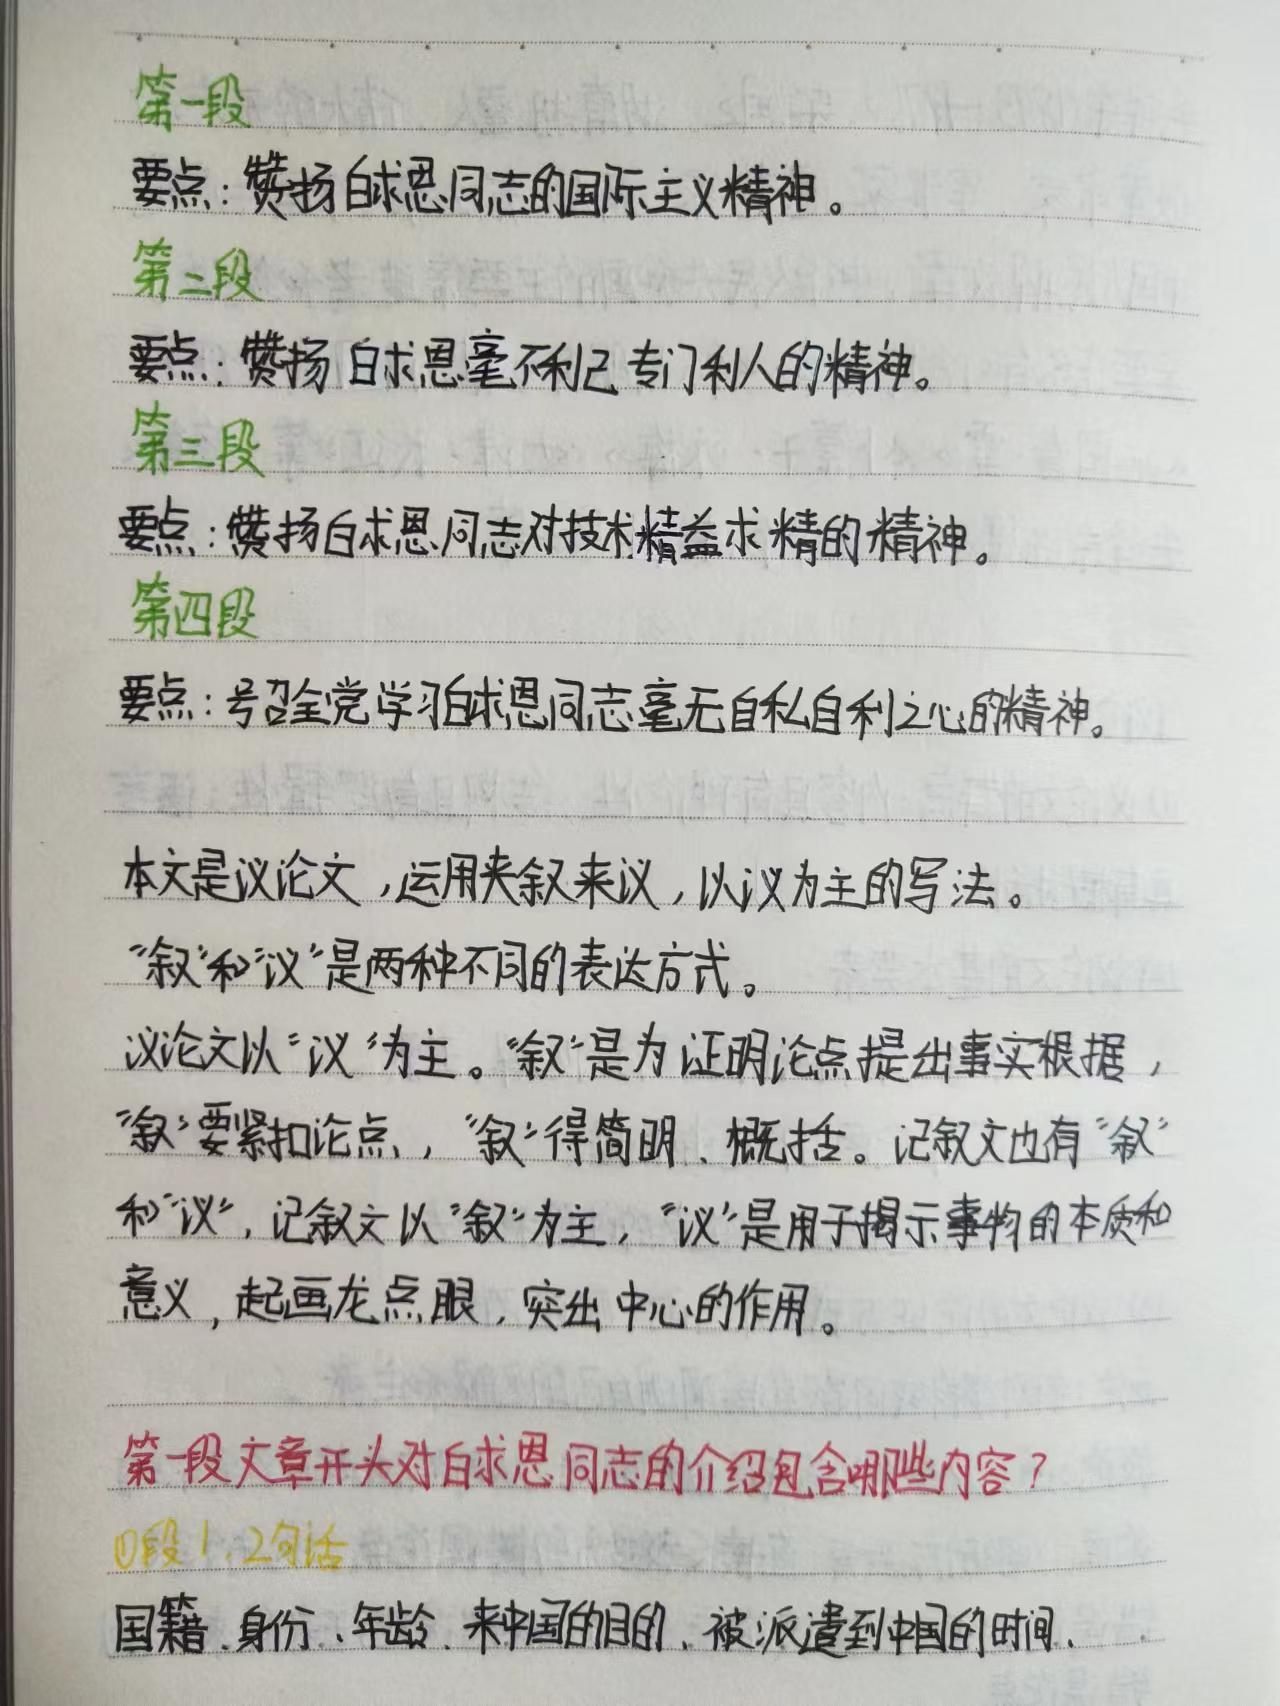 第一段
要点：赞扬白求恩同志的国际主义精神。
第二段
要点：赞扬白求恩毫不利己专门利人的精神。
第三段
要点：赞扬白求恩同志对技术精益求精的精神。
第四段
要点：号召全党学习白求恩同志毫无自私自利之心的精神。
本文是议论文，运用夹叙来议，以议为主的写法。
“叙”和“议”是两种不同的表达方式。
议论文以“议”为主。“叙”是为证明论点提出事实根据，
“叙”要紧扣论点，“叙”得简明、概括。记叙文也有“叙”
和“议”，记叙文以“叙”为主，“议”是用于揭示事物的本质和
意义，起画龙点眼，突出中心的作用。
第一段文章开头对白求恩同志的介绍包含哪些内容？
①段1、2句话
国籍、身份、年龄、来中国的目的、被派遣到中国的时间、